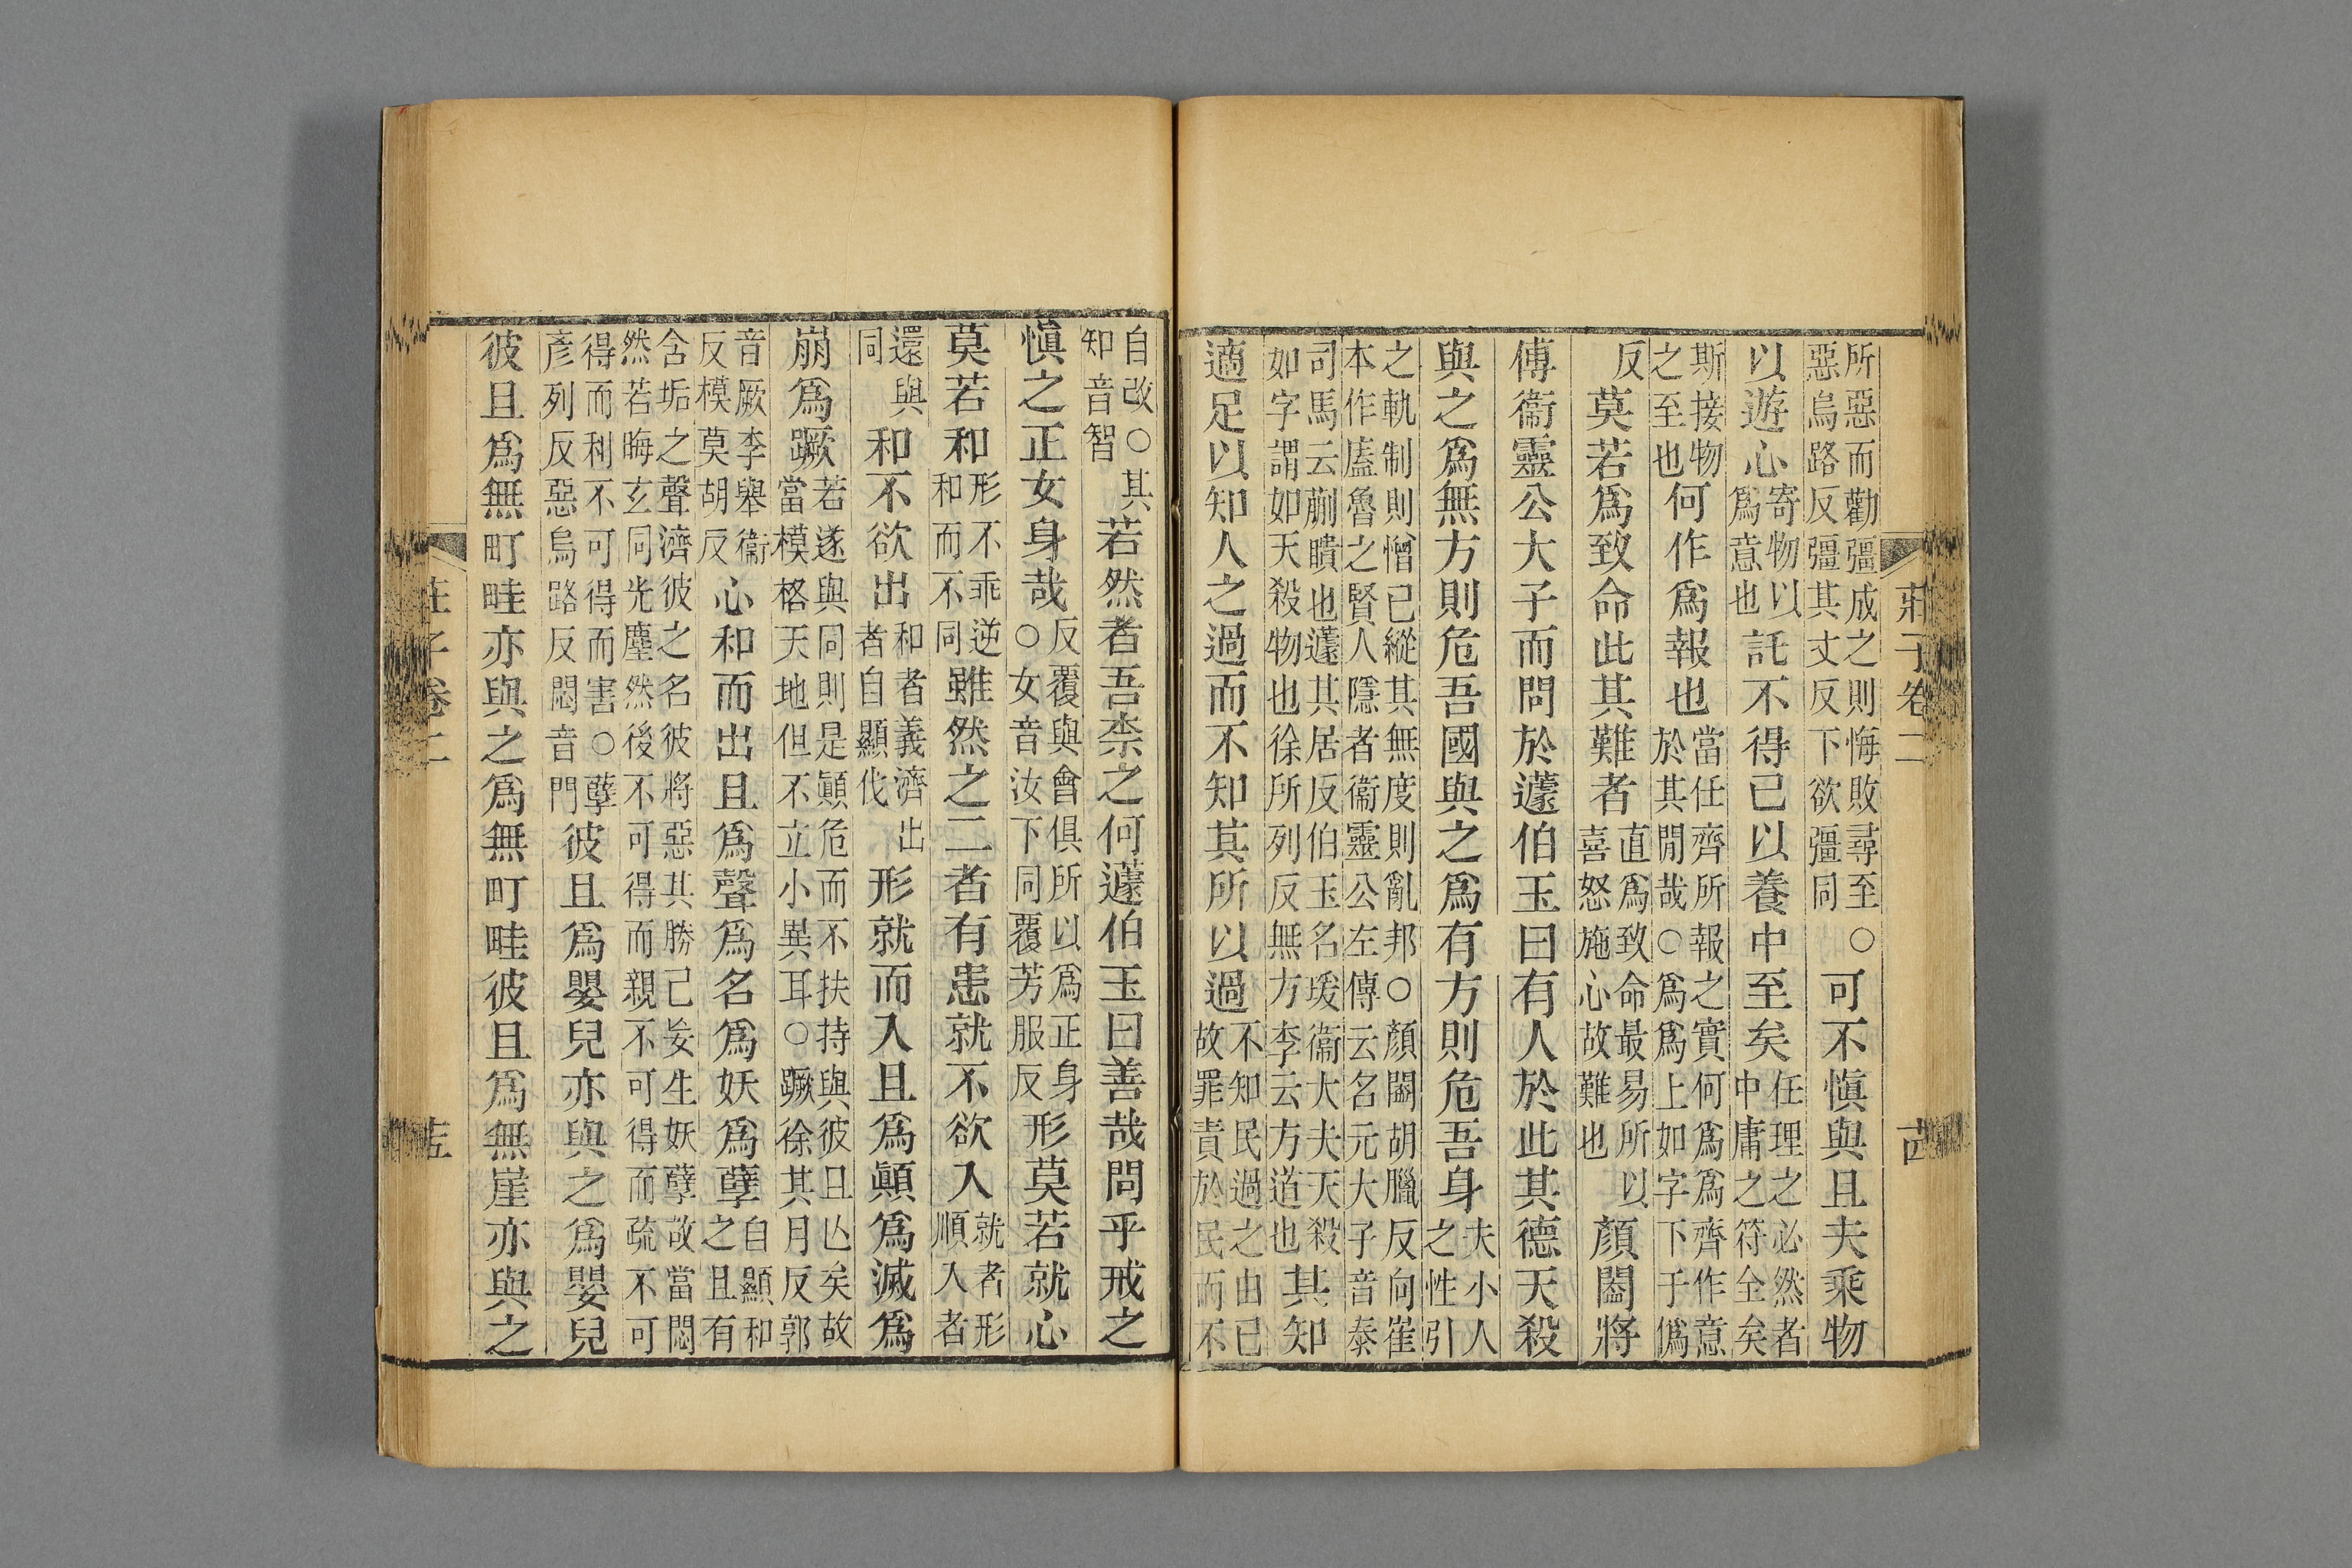 莊子卷二
所惡而勸彊成之則悔敗尋至○惡烏路反彊其丈反下欲彊同可不慎與且夫乘物
以遊心寄物以爲意也託不得已以養中至矣任理之必然者中庸之符全矣
斯接物之至也何作爲報也當任齊所報之實何爲爲齊作意於其閒哉○爲爲上如字下于僞
反莫若爲致命此其難者直爲致命最易所以喜怒施心故難也顏闔將
傅衞靈公大子而問於蘧伯玉曰有人於此其德天殺
與之爲無方則危吾國與之爲有方則危吾身夫小人之性引
之軌制則憎已縱其無度則亂邦○顏闔胡臘反向崔本作廅魯之賢人隱者衞靈公左傳云名元大子音泰
司馬云蒯聵也蘧其居反伯玉名瑗衞大夫天殺如字謂如天殺物也徐所列反無方李云方道也其知
適足以知人之過而不知其所以過不知民過之由已故罪責於民而不
自改○其知音智若然者吾柰之何蘧伯玉曰善哉問乎戒之
慎之正女身哉反覆與會俱所以爲正身○女音汝下同覆芳服反形莫若就心
莫若和形不乖逆和而不同雖然之二者有患就不欲入就者形順入者
還與同和不欲出和者義濟出者自顯伐形就而入且爲顚爲滅爲
崩爲蹶若遂與同則是顚危而不扶持與彼且亾矣故當模格天地但不立小異耳○蹶徐其月反郭
音厥李舉衞反模莫胡反心和而出且爲聲爲名爲妖爲孽自顯和之且有
含垢之聲濟彼之名彼將惡其勝己妄生妖孽故當悶然若晦玄同光塵然後不可得而親不可得而疏不可
得而利不可得而害○孽彥列反惡烏路反悶音門彼且爲嬰兒亦與之爲嬰兒
彼且爲無町畦亦與之爲無町畦彼且爲無崖亦與之
莊子卷二